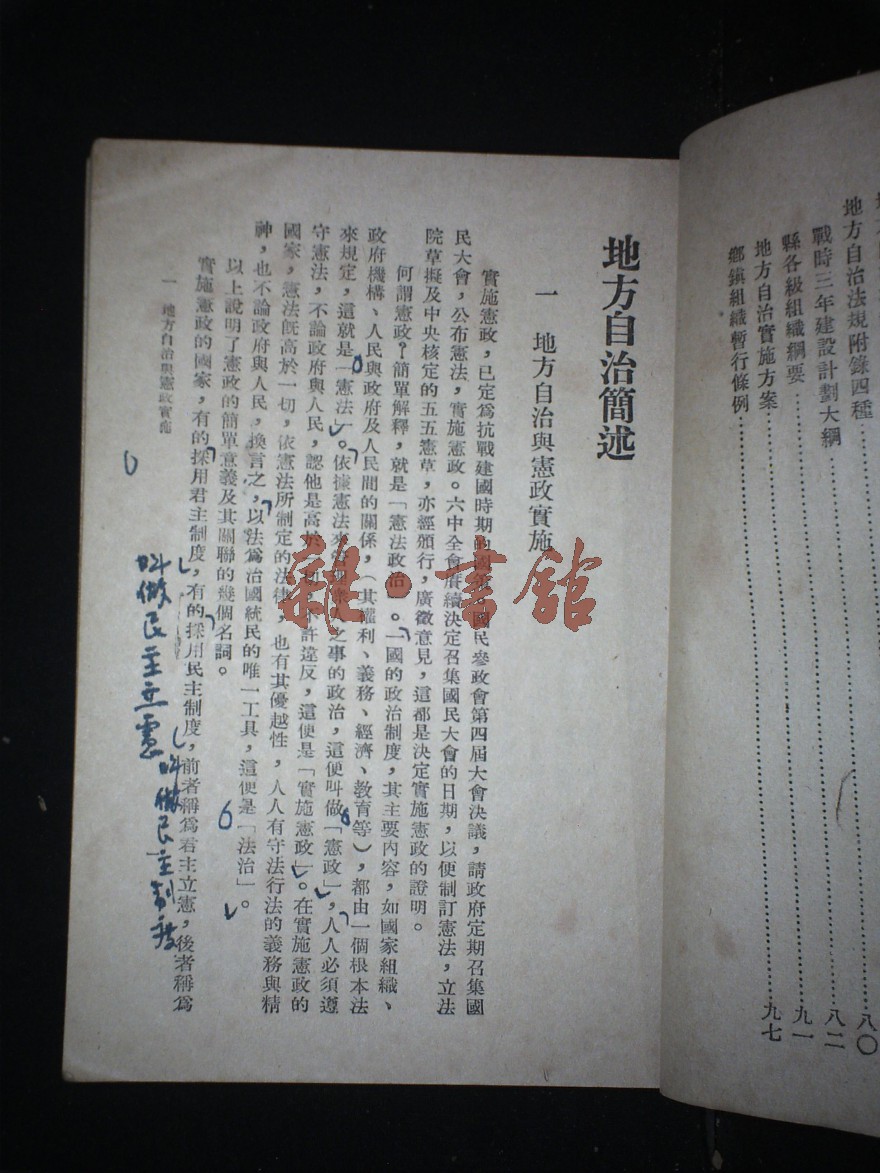 地方自治法規附錄四種……八〇
戰時三年建設計劃大綱……八二
縣各級組織綱要……九一
地方自治實施方案
鄉鎮組織暫行條例……九七
地方自治簡述
一 地方自治與憲政實施
實施憲政,已定為抗戰建國時期的國民參政會第四屆大會決議,請政府定期召集國
民大會,公布憲法,實施憲政。六中全會繼續決定召集國民大會的日期,以便制訂憲法,立法
院草擬及中央核定的五五憲草,亦經頒行,廣徵意見,這都是決定實施憲政的證明。
何謂憲政?簡單解釋,就是「憲法政治」。一國的政治制度,其主要內容,如國家組織、
政府機構、人民與政府及人民間的關係,(其權利、義務、經濟、教育等),都由一個根本法
來規定,這就是「憲法」。依據憲法來之事的政治,這便叫做「憲政」,人人必須遵
守憲法,不論政府與人民,認他是高於許違反,這便是「實施憲政」。在實施憲政的
國家,憲法旣高於一切,依憲法所制定的法律,也有其優越性,人人有守法行法的義務與精
神,也不論政府與人民,換言之,以法為治國統民的唯一工具,這便是「法治」。
以上說明了憲政的簡單意義及其關聯的幾個名詞。
實施憲政的國家,有的採用君主制度,有的採用民主制度,前者稱為君主立憲,後者稱為
一 地方自治與憲政實施
叫做民主立憲
叫做民主制
雜·書館